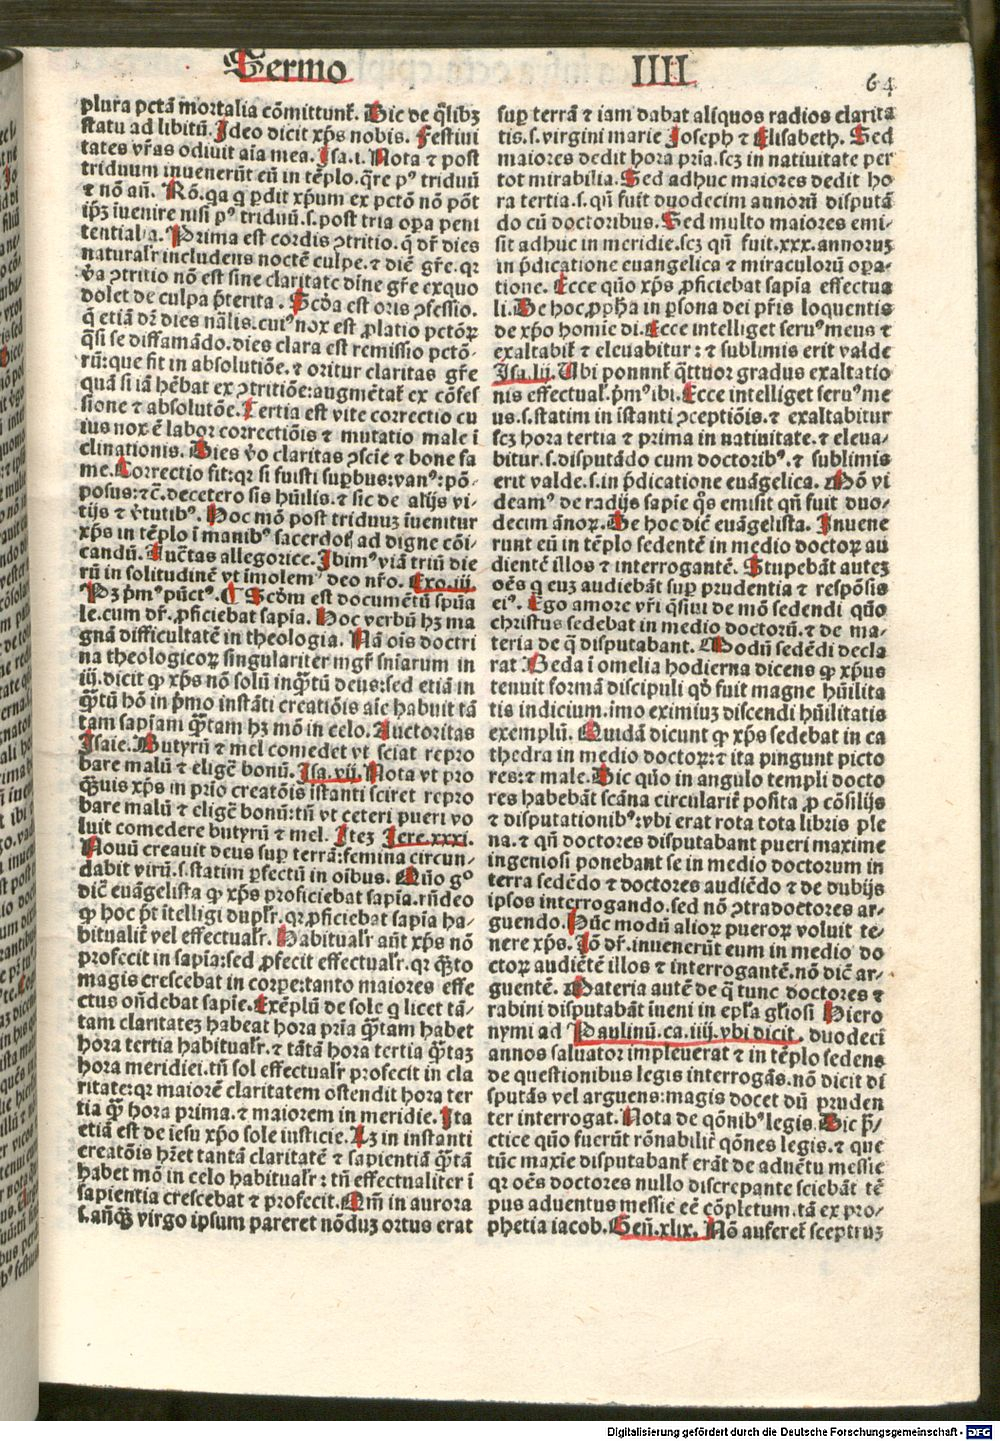 Sermo IIII
64
plura pctā mortalia cōmittunt̄. Hic de q̄libꝫ
statu ad libitū. Ideo dicit xp̄s nobis. Festiui
tates vr̄as odiuit aīa mea. Isa.i. Nota ⁊ post
triduum inuenerūt eū in tēplo.q̄re pꝰ triduū
⁊ nō an̄. Rō.qa q pdit xp̄um ex pctō nō pōt
ip̄ꝫ īuenire nisi pꝰ triduū.s.post tria oꝑa peni
tentialia. Prima est cordis ↄtritio.q̄ dr̄ dies
naturalr̄ includens noctē culpe.⁊ diē gr̄e.qr
v̄a ↄtritio nō est sine claritate diīne gr̄e exquo
dolet de culpa p̄terita. Scḋa est oris ↄfessio.
q̄ etiā dr̄ dies nālis.cuiꝰ nox est ꝓlatio pctōꝝ
q̄si se diffamādo.dies clara est remissio pctō-
rū:que fit in absolutiōe.⁊ oritur claritas gr̄e
quā si iā hēbat ex ↄtritiōe:augmētat̄ ex cōfes
sione ⁊ absolutōe. Tertia est vite correctio cu
ius nox ē labor correctiōis ⁊ mutatio male i
clinationis. Dies v̄o claritas ↄscie ⁊ bone fa
me. Correctio fit:qr si fuisti suꝑbus:vanꝰ:pō-
posus:⁊c̄.decetero sis hūilis.⁊ sic de alijs vi-
tijs ⁊ v̄tutibꝰ. Hoc mō post triduuꝫ īuenitur
xp̄s in tēplo ī manibꝰ sacerdot̄ ad digne cōi-
candū. Auctas allegorice. Ibimꝰ viā triū die
rū in solitudinē vt īmolemꝰ deo nr̄o. Exo.iii.
Pꝫ p̄mꝰ pūctꝰ. ¶ Scḋm est documētū spūa
le.cum dr̄.ꝓficiebat sapīa. Hoc verbū hꝫ ma
gnā difficultatē in theologia. Nā oīs doctri
na theologicoꝝ singulariter mgr̄ sniarum in
iij.dicit ꝙ xp̄s nō solū inq̄tū deus:sed etiā in
q̄tū hō in p̄mo instāti creatiōis aīe habuit tā
tam sapīam q̄tam hꝫ mō in celo. Auctoritas
Isaie. Butyrū ⁊ mel comedet vt sciat repro
bare malū ⁊ eligē bonū. Isa.vii. Nota vt pro
q̄uis xp̄s in prīo creatōis īstanti sciret repro
bare malū ⁊ eligē bonū:tn̄ vt ceteri pueri vo
luit comedere butyrū ⁊ mel. Iteꝫ Iere.xxxi.
Nouū creauit deus suꝑ terrā:femina circun-
dabit virū.s.statim ꝑfectū in oibus. Quō gº
dic̄ euāgelista ꝙ xp̄s proficiebat sapīa.rn̄deo
ꝙ hoc p̄t ītelligi duplr̄.qr ꝓficiebat sapīa ha-
bitualit̄ vel effectualr̄. Habitualr̄ aūt xp̄s nō
profecit in sapīa:sed ꝓfecit effectualr̄.qr q̄to
magis crescebat in corꝑe:tanto maiores effe
ctus on̄debat sapīe. Exēplū de sole q licet tā-
tam claritateꝫ habeat hora prīa q̄tam habet
hora tertia habitualr̄.⁊ tātā hora tertia q̄taꝫ
hora meridiei.tn̄ sol effectualr̄ profecit in cla
ritate:qr maiorē claritatem ostendit hora ter
tia q̄ hora prima.⁊ maiorem in meridie. Ita
etiā est de iesu xp̄o sole iusticie. Lꝫ in instanti
creatōis hr̄et tantā claritatē ⁊ sapientiā q̄tā
habet mō in celo habitualr̄: tn̄ effectualiter ī
sapientia crescebat ⁊ profecit. Qm̄ in aurora
s.an̄q̄ virgo ipsum pareret nōduꝫ ortus erat
suꝑ terrā ⁊ iam dabat alíquos radios clarita
tis.s.virgini marie Joseph ⁊ Elisabeth. Sed
maiores dedit hora prīa.scꝫ in natiuitate per
tot mirabilia. Sed adhuc maiores dedit ho
ra tertia.s.qn̄ fuit duodecim annorū disputā
do cū doctoribus. Sed multo maiores emi-
sit adhuc in meridie.scꝫ qn̄ fuit.xxx.annoruꝫ
in p̄dicatione euangelica ⁊ miraculorū oꝑa-
tione. Ecce quō xp̄s ꝓficiebat sapīa effectua
li. De hoc ꝓpp̄ha in ꝑsona dei pr̄is loquentis
de xp̄o homīe di. Ecce intelliget seruꝰ meus ⁊
exaltabit̄ ⁊ eleuabitur: ⁊ sublimis erit valde
Isa.lii. Ubi ponunt̄ q̄ttuor gradus exaltatio
nis effectual.p̄mꝰ ibi. Ecce intelliget seruꝰ me
us.s.statim in īstanti ↄceptiōis.⁊ exaltabitur
scꝫ hora tertia ⁊ prima in natiuitate.⁊ eleua-
bitur.s.disputādo cum doctoribꝰ.⁊ sublimis
erit valde.s.in p̄dicatione euāgelica. Mō vi
deamꝰ de radijs sapīe q̄s emisit qn̄ fuit duo-
decim ānoꝝ. De hoc dic̄ euāgelista. Inuene
runt eū in tēplo sedentē in medio doctoꝝ au
dientē illos ⁊ interrogantē. Stupebāt auteꝫ
oēs q euꝫ audiebāt suꝑ prudentia ⁊ respōsis
eiꝰ. Ego amore vr̄i q̄siui de mō sedendi quō
christus sedebat in medio doctorū.⁊ de ma-
teria de q̄ disputabant. Modū sedēdi decla
rat Beda ī omelia hodierna dicens ꝙ xp̄us
tenuit formā discipuli qḋ fuit magne hūilita
tis indicium.imo eximiuꝫ discendi hūilitatis
exemplū. Quidā dicunt ꝙ xp̄s sedebat in ca
thedra in medio doctoꝝ:⁊ ita pingunt picto
res:⁊ male. Hic quō in angulo templi docto
res habebāt scāna circularit̄ posita ꝓ cōsilijs
⁊ disputationibꝰ:vbi erat rota tota libris ple
na.⁊ qn̄ doctores disputabant pueri maxime
ingeniosi ponebant se in medio doctorum in
terra sedēdo ⁊ doctores audiēdo ⁊ de dubijs
ipsos interrogando.sed nō ↄtradoctores ar-
guendo. Hūc modū alioꝝ pueroꝝ voluit te-
nere xp̄s. Iō dr̄.inuenerūt eum in medio do
ctoꝝ audiētē illos ⁊ interrogantē.nō dic̄ ar-
guentē. Materia autē de q̄ tunc doctores ⁊
rabini disputabāt īueni in epl̄a gl̄iosi Hiero
nymi ad Paulinū.ca.iiij.vbi dicit. duodecī
annos saluator impleuerat ⁊ in tēplo sedens
de questionibus legis interrogās.nō dicit di
sputās vel arguens:magis docet dū pruden
ter interrogat. Nota de qōnibꝰ legis. Hic p̄/
ctice quō fuerūt rōnabilit̄ qōnes legis.⁊ que
tūc maxīe disputabant̄ erāt de aduētu messie
qr oēs doctores nullo discrepante sciebāt tē
pus aduentus messie eē cōpletum.tā ex pro/
phetia iacob. Gen̄.xlix. Nō auferet̄ sceptruꝫ
Digitalisierung gefördert durch die Deutsche Forschungsgemeinschaft - DFG